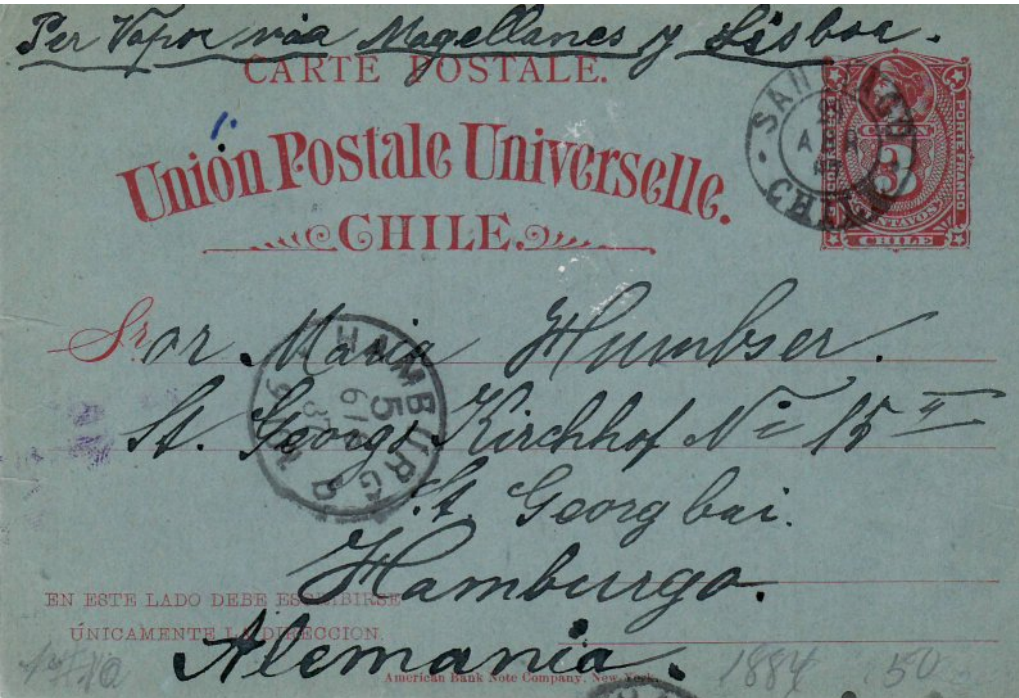 Per Vapor via Magellanes y Lisboa.
CARTE POSTALE.
Unión Postale Universelle.
CHILE.
SANTIAGO
CHILE
PORTE FRANCO
3
CENTAVOS
CHILE
Sr. or Maria Humbser.
HAMBURG
5
St. Georgs Kirchhof No 15 II
St. Georg bei.
Hamburgo.
EN ESTE LADO DEBE ESCRIBIRSE
ÚNICAMENTE LA DIRECCION.
Alemania.
American Bank Note Company, New York.
1884 50